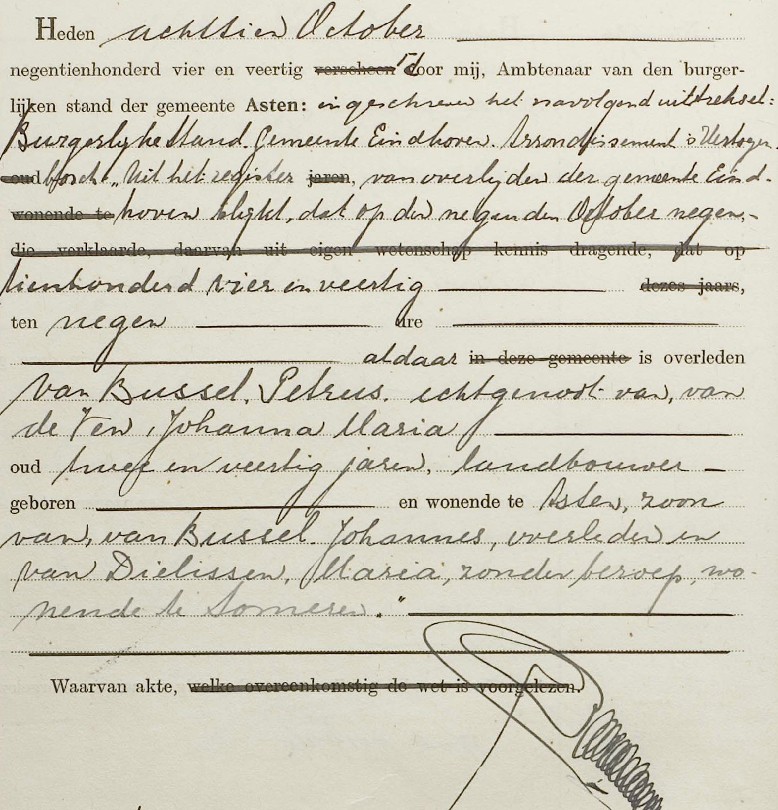 Heden achttien October
negentienhonderd vier en veertig verscheen door mij, Ambtenaar van den burger-
lijken stand der gemeente Asten: ingeschreven het navolgend uittreksel:
Burgerlijke Stand. Gemeente Eindhoven. Arrondissement 's Hertogen-
oud bosch. "Uit het register jaren, van overlijden der gemeente Eind-
wonende te hoven blijkt, dat op den negenden October negen-
die verklaarde, daarvan uit eigen wetenschap kennis dragende, dat op
tienhonderd vier en veertig dezes jaars,
ten negen ure
aldaar in deze gemeente is overleden
van Bussel, Petrus, echtgenoot van, van
de Ven, Johanna Maria
oud twee en veertig jaren, landbouwer
geboren en wonende te Asten, zoon
van, van Bussel. Johannes, overleden en
van Dielissen, Maria, zonder beroep, wo-
nende te Someren."
Waarvan akte, welke overeenkomstig de wet is voorgelezen.